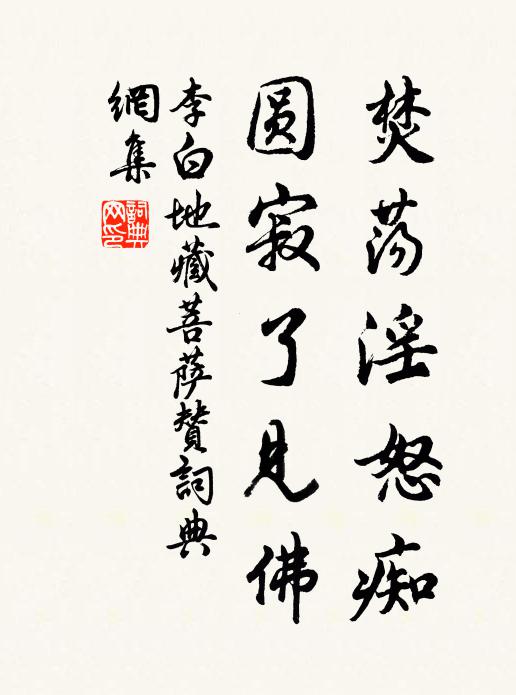 焚荡淫怒痴
圆寂了见佛
李白地藏菩萨赞詞典
網集
詞典网印